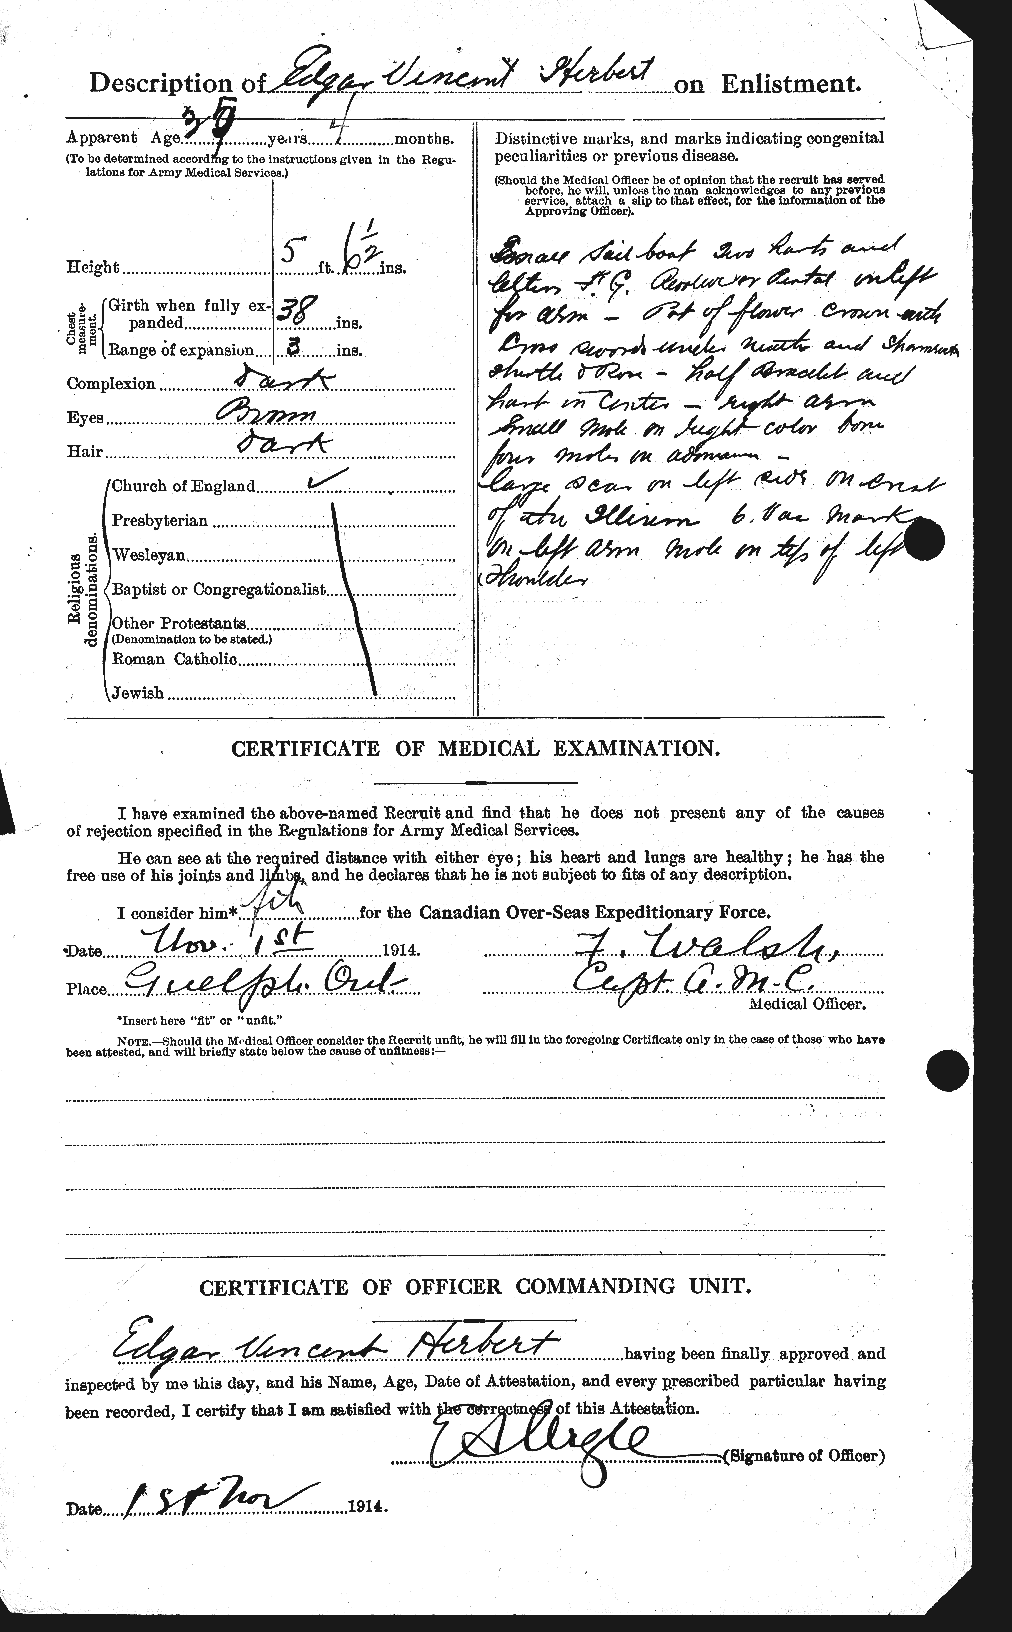 Description of Edgar Vincent Herbert on Enlistment.
Apparent Age 3 years 4 months.
(To be determined according to the instructions given in the Regu-
lations for Army Medical Services.)
Height 5 ft. 6 1/2 ins.
Chest measure-ment.
Girth when fully ex-
panded 38 ins.
Range of expansion 3 ins.
Complexion Dark
Eyes Brown
Hair Dark
Religious denominations.
Church of England ✓
Presbyterian
Wesleyan
Baptist or Congregationalist
Other Protestants
(Denomination to be stated.)
Roman Catholic
Jewish
Distinctive marks, and marks indicating congenital
peculiarities or previous disease.
(Should the Medical Officer be of opinion that the recruit has served
before, he will, unless the man acknowledges to any previous
service, attach a slip to that effect, for the information of the
Approving Officer).
Small Sail boat Two harts and
F. G. on left
for arm – Pot of flower crown with
Cross swords under neath and Shamrock
& Rose – half Bracelet and
hart in Center – right arm
Small Mole on right color bone
four moles on –
large scar on left side on crest
of the Illium 6. Vac Mark
on left arm mole on top of left
Shoulder
CERTIFICATE OF MEDICAL EXAMINATION.
I have examined the above-named Recruit and find that he does not present any of the causes
of rejection specified in the Regulations for Army Medical Services.
He can see at the required distance with either eye; his heart and lungs are healthy; he has the
free use of his joints and limbs, and he declares that he is not subject to fits of any description.
I consider him* fit for the Canadian Over-Seas Expeditionary Force.
Date Nov. 1st 1914.
F. Walsh,
Place Guelph. Ont.
Capt. A. M. C.
Medical Officer.
*Insert here "fit" or "unfit."
NOTE.—Should the Medical Officer consider the Recruit unfit, he will fill in the foregoing Certificate only in the case of those who have
been attested, and will briefly state below the cause of unfitness:—
CERTIFICATE OF OFFICER COMMANDING UNIT.
Edgar Vincent Herbert having been finally approved and
inspected by me this day, and his Name, Age, Date of Attestation, and every prescribed particular having
been recorded, I certify that I am satisfied with the correctness of this Attestation.
(Signature of Officer)
Date 1st Nov 1914.